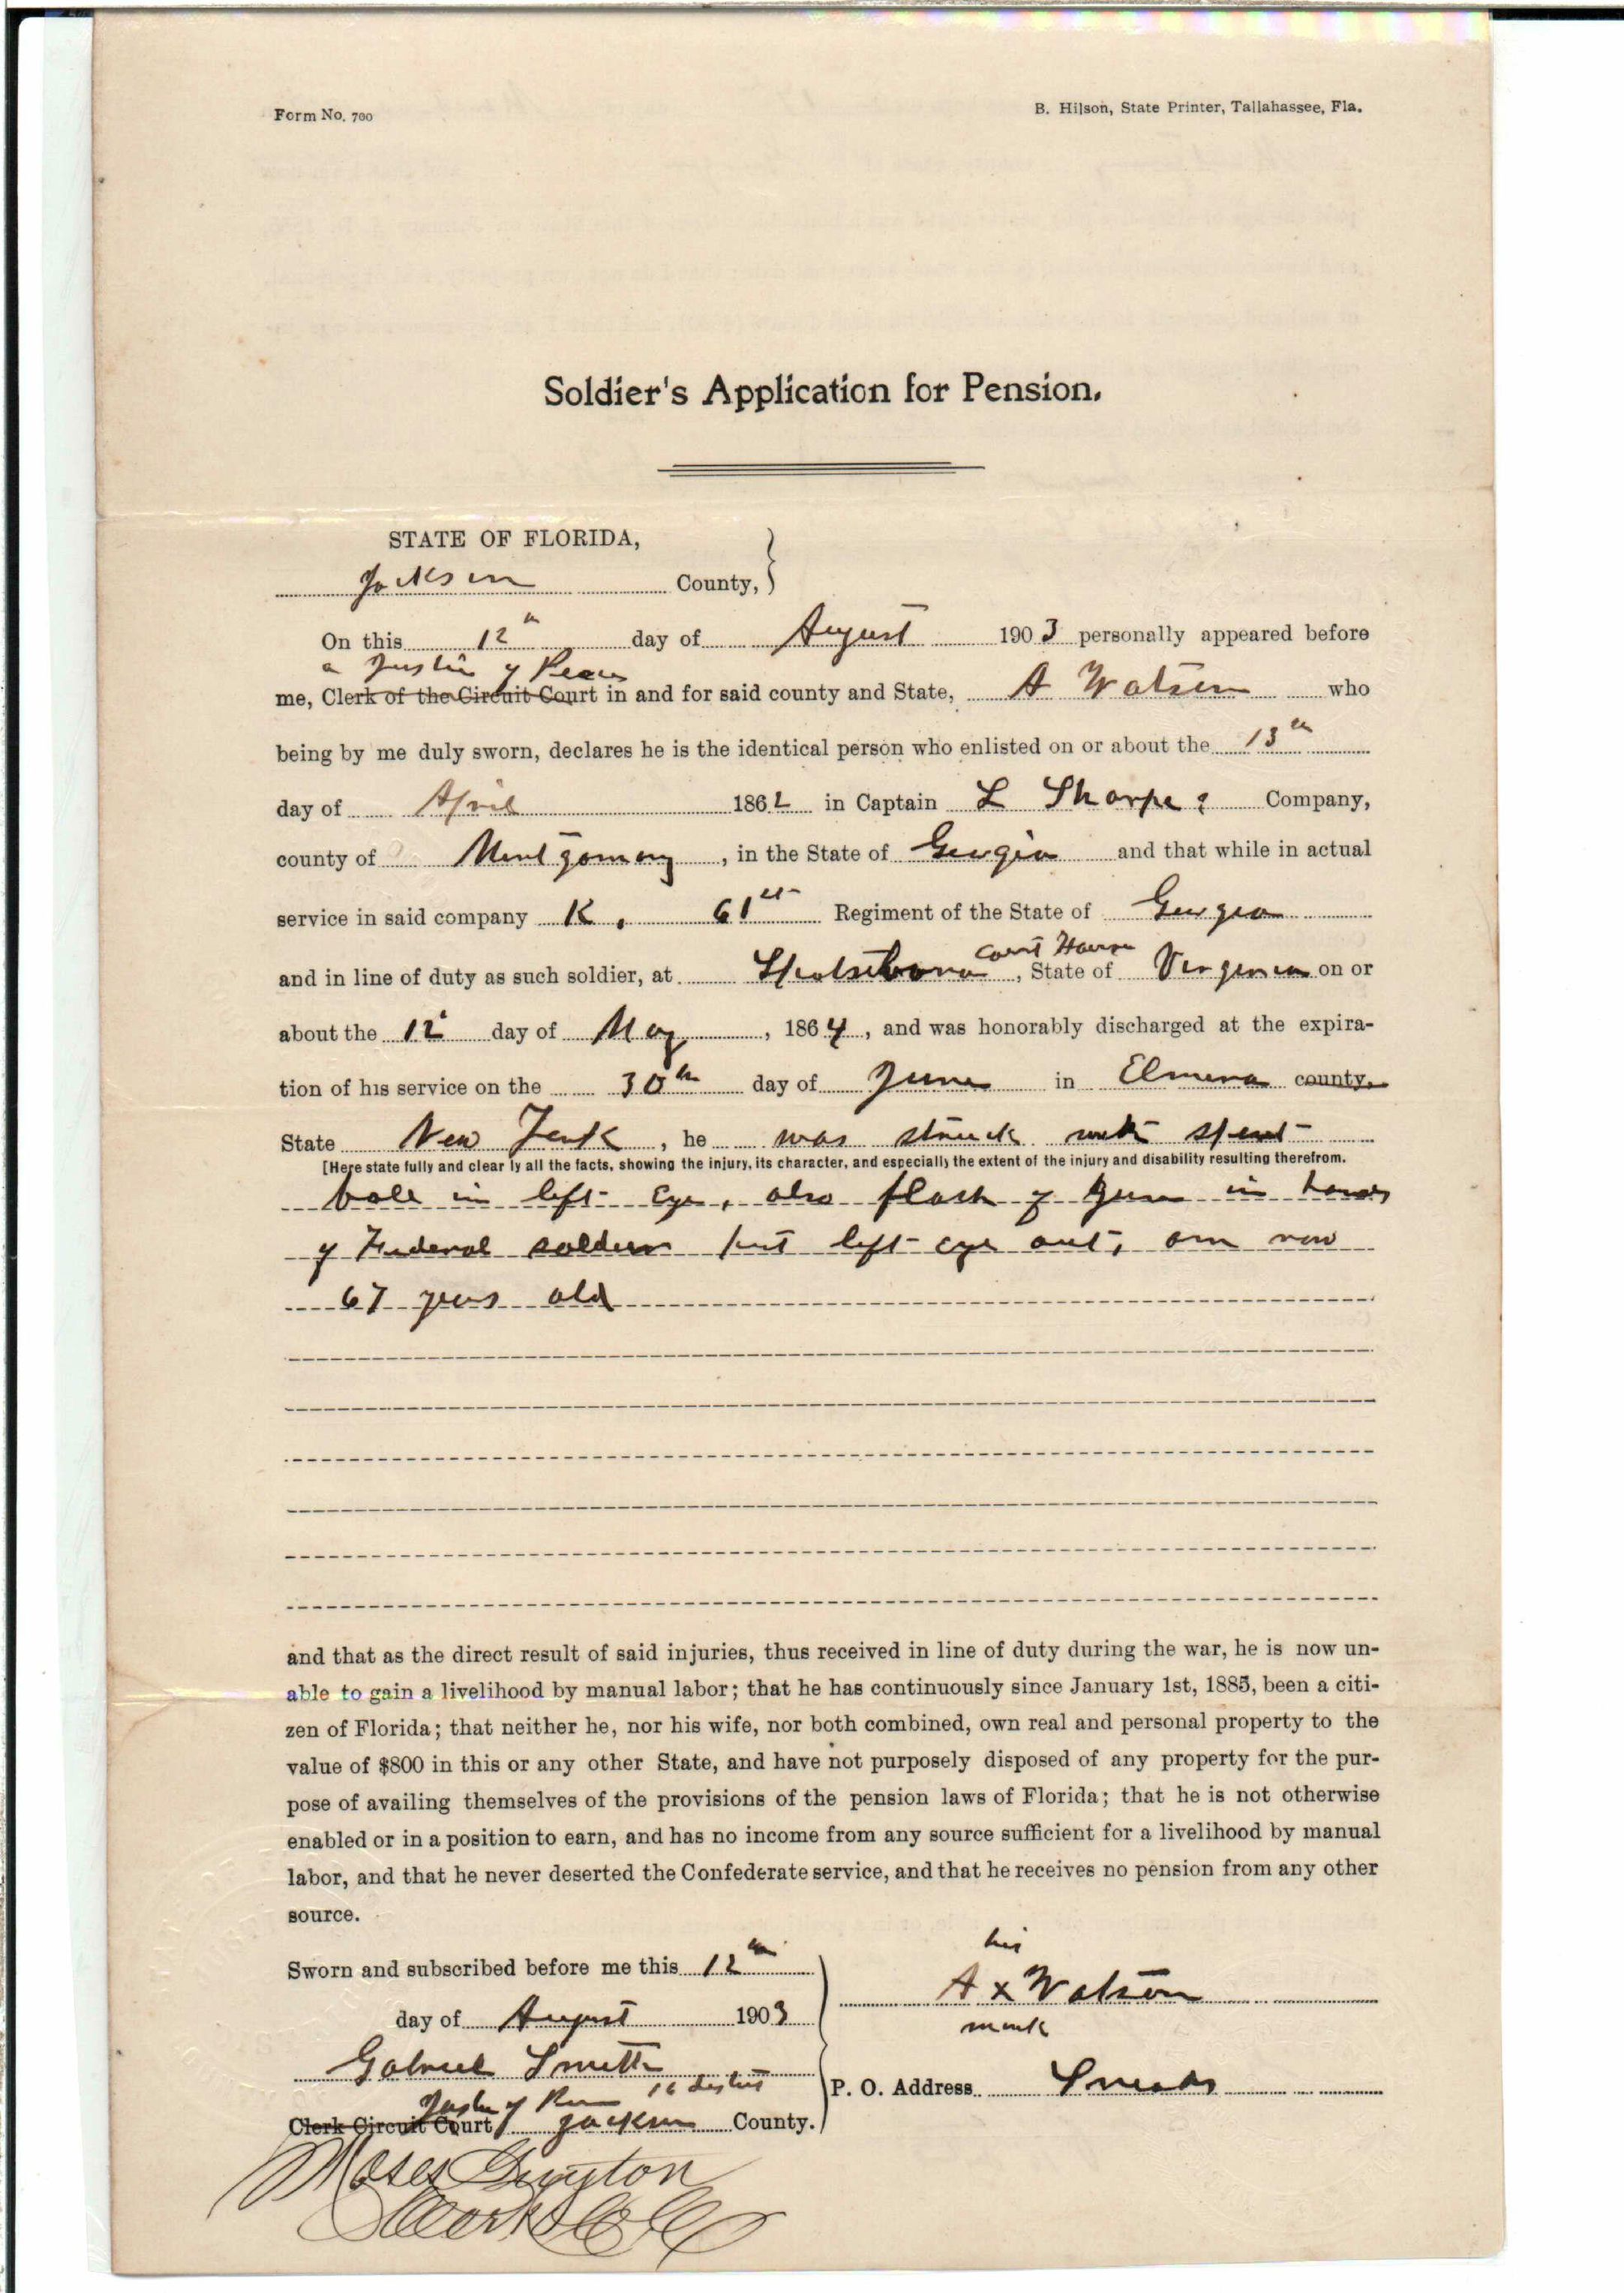 Form No. 700
B. Hilson, State Printer, Tallahassee, Fla.
Soldier's Application for Pension.
STATE OF FLORIDA,
Jackson County,
On this 12th day of August 1903 personally appeared before
a Justice of Peace
me, Clerk of the Circuit Court in and for said county and State, A Watson who
being by me duly sworn, declares he is the identical person who enlisted on or about the 13th
day of April 1862 in Captain L Sharpes Company,
county of Montgomery, in the State of Georgia and that while in actual
service in said company K, 61st Regiment of the State of Georgia
and in line of duty as such soldier, at Court House, State of Virginia on or
about the 12 day of May, 1864, and was honorably discharged at the expira-
tion of his service on the 30th day of June in Elmira county,
State New York, he was struck with spent
[Here state fully and clearly all the facts, showing the injury, its character, and especially the extent of the injury and disability resulting therefrom.
ball in left Eye, also flash of gun in hands
of Federal soldier put left eye out, am now
67 years old
and that as the direct result of said injuries, thus received in line of duty during the war, he is now un-
able to gain a livelihood by manual labor; that he has continuously since January 1st, 1885, been a citi-
zen of Florida; that neither he, nor his wife, nor both combined, own real and personal property to the
value of $800 in this or any other State, and have not purposely disposed of any property for the pur-
pose of availing themselves of the provisions of the pension laws of Florida; that he is not otherwise
enabled or in a position to earn, and has no income from any source sufficient for a livelihood by manual
labor, and that he never deserted the Confederate service, and that he receives no pension from any other
source.
Sworn and subscribed before me this 12th
day of August 1903
his
A x Watson
mark
Gabriel Smith
P. O. Address Sneads
Justice of Peace 16 district
Clerk Circuit Court Jackson County.
Moses Guyton
Clerk